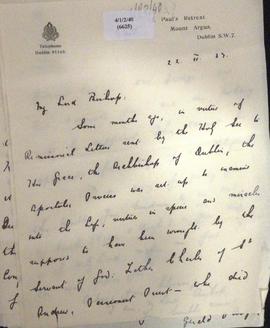 4/1/2/40
(6625)
Paul's Retreat
Mount Argus,
Dublin S.W.7.
Telephone
Dublin
My Lord Bishop:
Some months ago, in virtue of
Remissorial Letters sent by the Holy See to
His Grace, the Archbishop of Dublin, the
Apostolic Process was set up to examine
into the life, virtues in specie and miracles
supposed to have been wrought by the
Servant of God: Father Charles of St
Andrew, Passionist Priest - who died